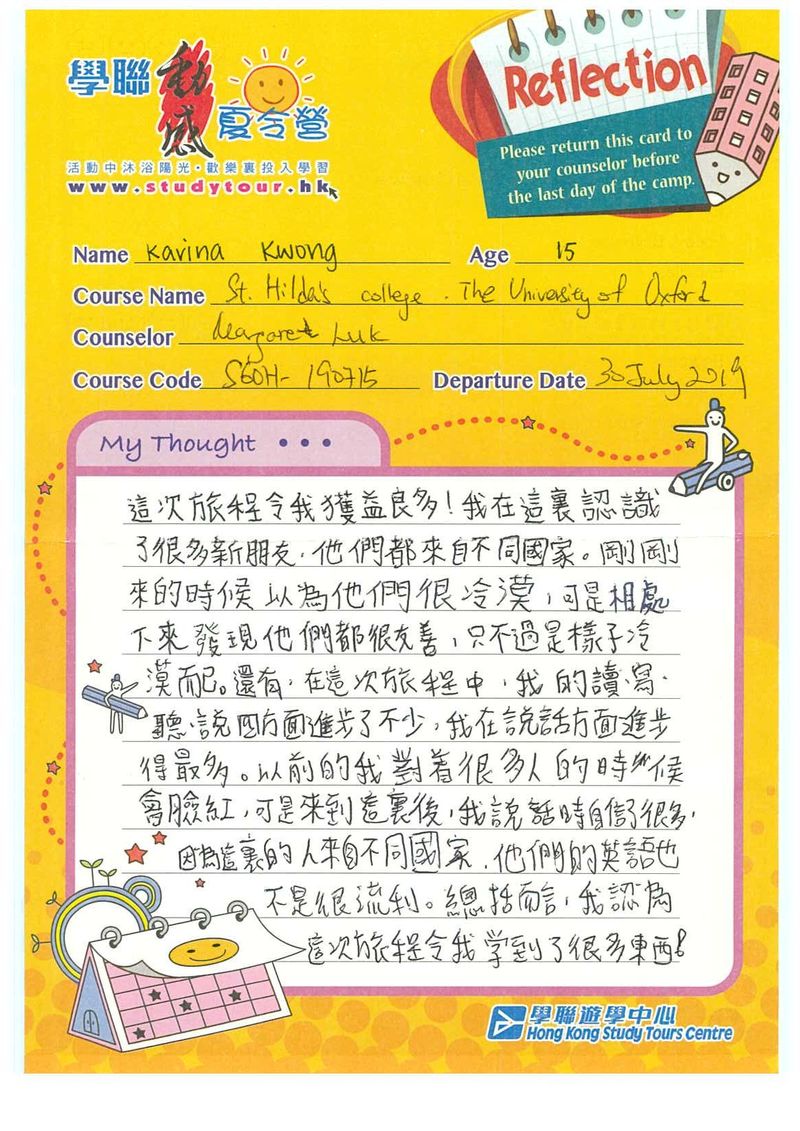 學聯
動感
夏令營
活動中沐浴陽光·歡樂裏投入學習
www.studytour.hk
Reflection
Please return this card to
your counselor before
the last day of the camp.
Name Karina Kwong Age 15
Course Name St. Hilda's college. The University of Oxford
Counselor Margaret Luk
Course Code S60H-190715 Departure Date 30 July 2019
My Thought • • •
這次旅程令我獲益良多！我在這裏認識
了很多新朋友，他們都來自不同國家。剛剛
來的時候以為他們很冷漠，可是相處
下來發現他們都很友善，只不過是樣子冷
漠而已。還有，在這次旅程中，我的讀、寫、
聽、說四方面進步了不少，我在說話方面進步
得最多。以前的我對着很多人的時候
會臉紅，可是來到這裏後，我說話時自信了很多，
因為這裏的人來自不同國家，他們的英語也
不是很流利。總括而言，我認為
這次旅程令我學到了很多東西！
學聯遊學中心
Hong Kong Study Tours Centre